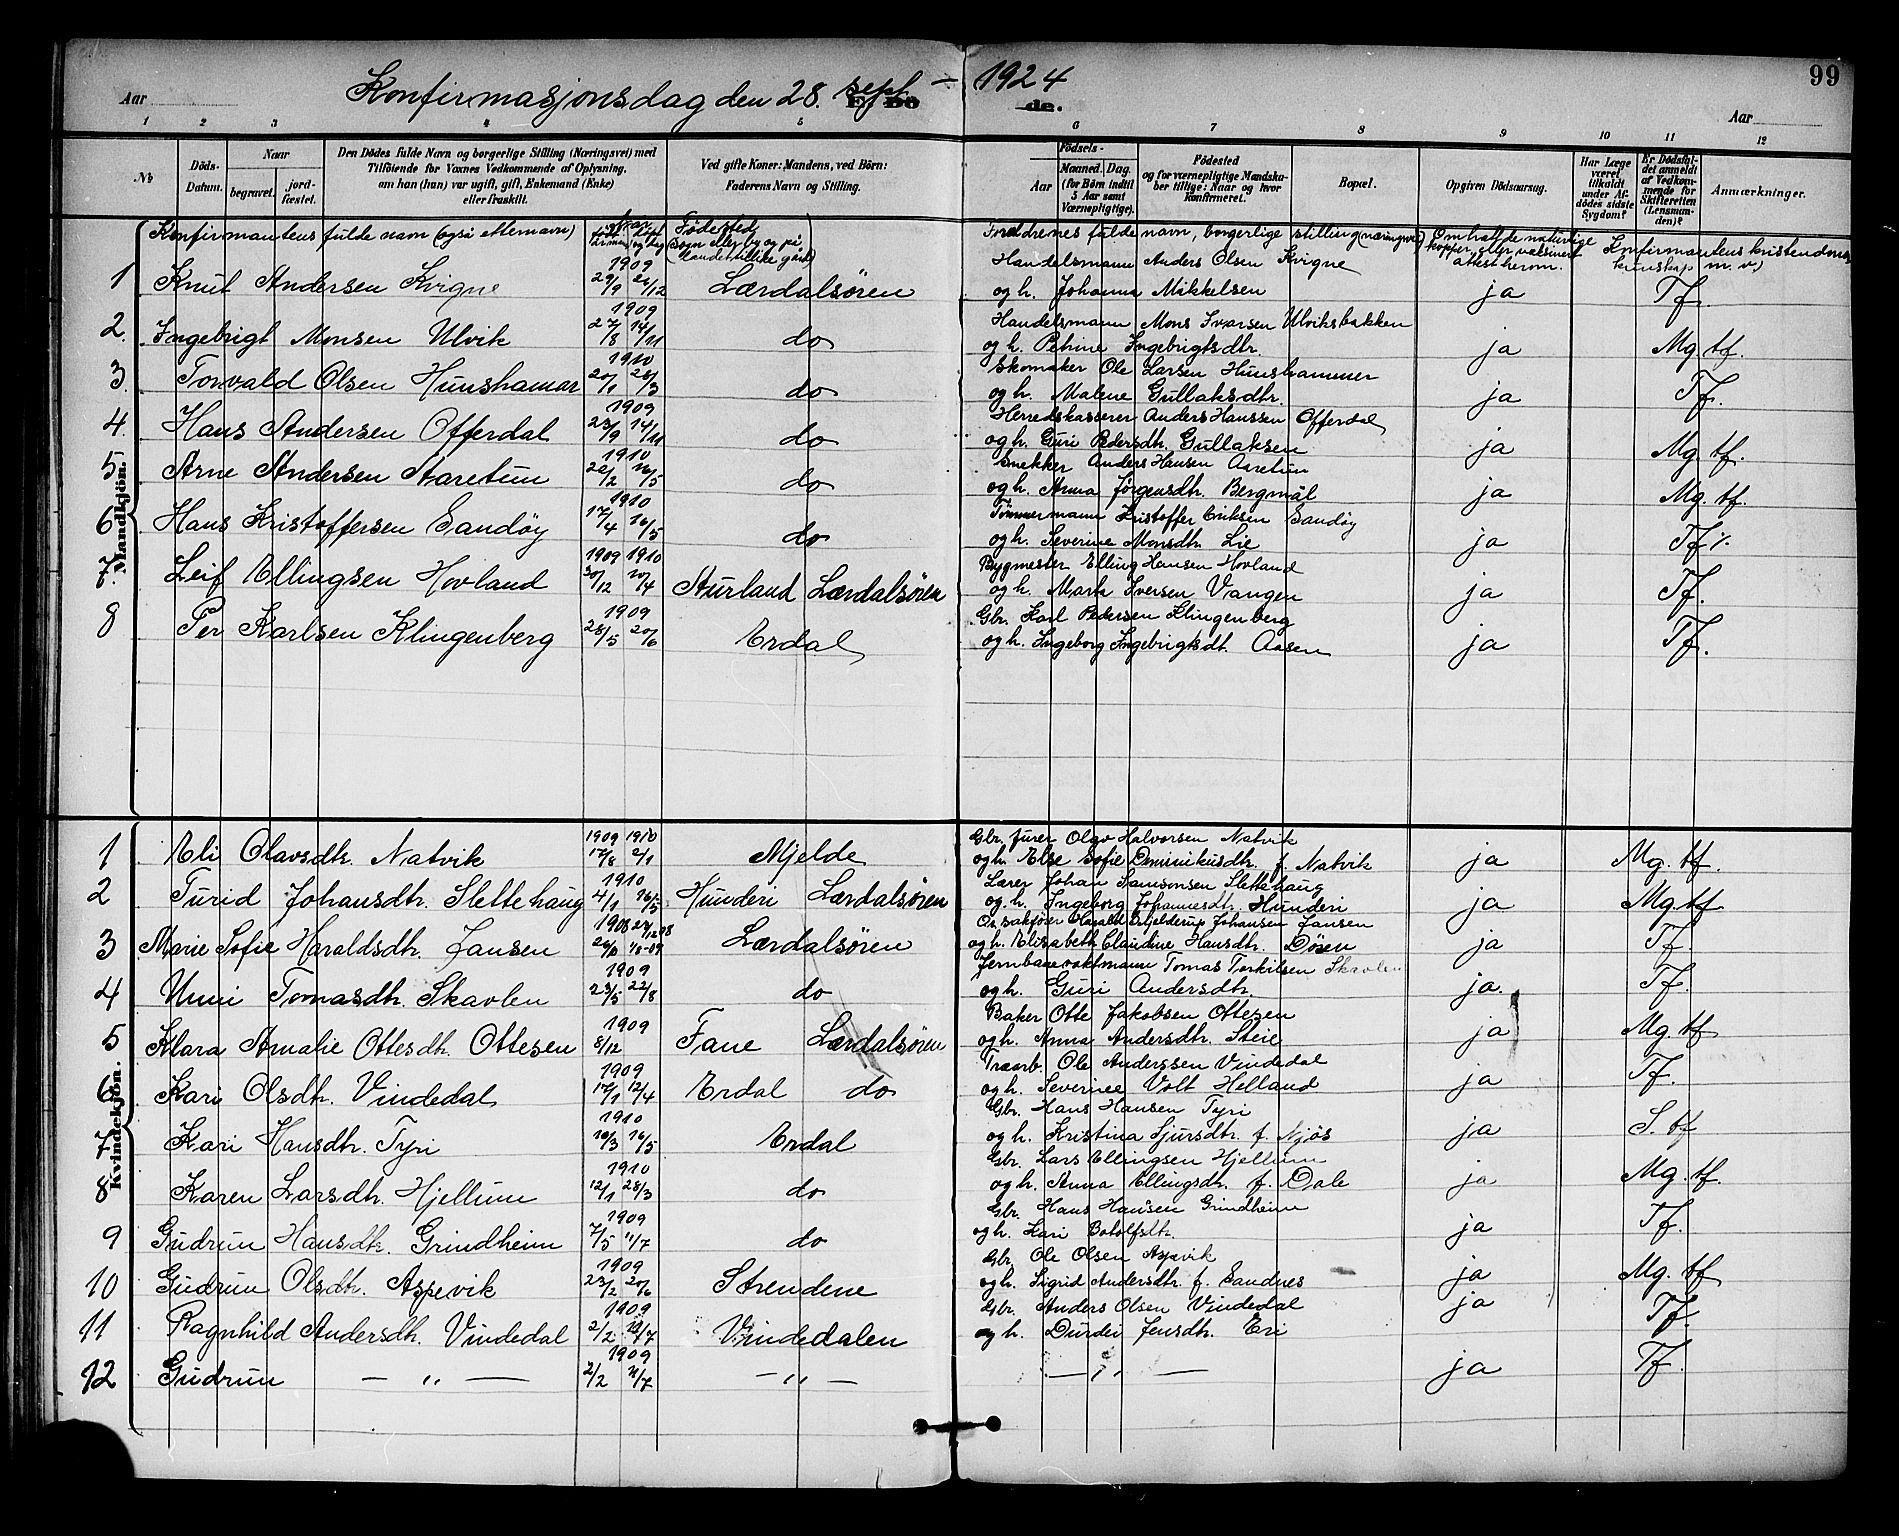 Aar Konfirmasjonsdag den 28. sept. – 1924 Aar 99
1 2 3 4 5 6 7 8 9 10 11 12
No Döds-Datum. Naar begravet. jord-fæstet.
Den Dödes fulde Navn og borgerlige Stilling (Næringsvei) med
Tilföiende for Voxnes Vedkommende af Oplysning,
om han (hun) var ugift, gift, Enkemand (Enke)
eller fraskilt.
Ved gifte Koner: Mandens, ved Börn:
Faderens Navn og Stilling.
Födsels-
Aar Maaned. Dag.
(for Börn indtil
5 Aar samt
Værnepligtige).
Födested
og for værnepligtige Mandska-
ber tillige: Naar og hvor
konfirmeret.
Bopæl.
Opgiven Dödsaarsag.
Har Læge
været
tilkaldt
under Af-
dödes sidste
Sygdom?
Er Dödsfal-
det anmeldt
af Vedkom-
mende for
Skifteretten
(Lensman-
den)?
Anmærkninger.
Konfirmantens fulde navn (også etternavn)
Födested
(Sogn eller by og på
landet tillike gård)
Foreldrenes fulde navn, borgerlige stilling (næringsvei)
Om hat de naturlige
kopper eller vaksinert
attest herom.
Konfirmantens kristendoms
kunskap m. v)
Mandkjön.
1 Knut Andersen Kvigne 1909 29/9 26/12 Lærdalsøren Handelsmann Anders Olsen Kvigne
og h. Johanna Mikkelsen ja Tf.
2. Ingebrigt Monsen Ulvik 1909 27/8 14/11 do Handelsmann Mons Ivarsen Ulviksbakken
og h. Petrine Ingebrigtsdtr. ja Mg tf.
3. Torvald Olsen Hunshamar 1910 20/1 28/3 do Skomaker Ole Larsen Hunshammer
og h. Malene Gullaksdtr. ja Tf.
4. Hans Andersen Offerdal 1909 23/9 14/11 do Herredskasserer Anders Hanssen Offerdal
og h. Guri Pedersdtr. Gullaksen ja Mg. tf.
5 Arne Andersen Aaretun 1910 22/2 16/5 do Snekker Anders Hansen Aaretun
og h. Anna Jørgensdtr. Bergmål ja Mg. tf.
6 Hans Kristoffersen Sandøy 1910 17/4 16/5 do Tömmermann Kristoffer Eriksen Sandøy
og h. Severine Monsdtr. Lie ja Tf.
7. Leif Ellingsen Hovland 1909 1910 30/12 20/4 Aurland Lærdalsøren Bygmester Elling Hansen Hovland
og h. Marta Iversen Vangen ja Tf.
8 Per Karlsen Klingenberg 1909 28/5 20/6 Erdal Gbr. Karl Pedersen Klingenberg
og h. Ingeborg Ingebrigtsdt. Aasen ja Tf.
Kvindekjön.
1 Eli Olavsdtr. Natvik 1909 1910 17/8 2/1 Mjelde Gbr. furer Olav Halvorsen Natvik
og h. Else Sofie Dminikusdtr. f. Natvik ja Mg. tf.
2 Turid Johansdtr. Slettehaug 1910 4/1 16/5 Hunderi Lærdalsøren Lærer Johan Samsonsen Slettehaug
og h. Ingeborg Johannesdtr. Hunderi ja Mg tf
3 Marie Sofie Haraldsdtr. Jansen 1908 Lærdalsøren Harald Johansen Jansen
og h. Elisabeth Claudine Hansdtr. Døsen ja Tf.
4 Unni Tomasdtr. Skavlen 1909 23/5 22/8 do Jernbanevaktmann Tomas Torkilsen Skavlen
og h. Guri Andersdtr. ja. Tf.
5 Klara Amalie Ottesdtr. Ottesen 1909 8/12 Fane Lærdalsøren Baker Otte Jakobsen Ottesen
og h. Anna Andersdtr. Steie ja Mg. tf
6 Kari Olsdtr. Vindedal 1909 17/1 12/4 Erdal do Traarb. Ole Anderssen Vindedal
og h. Severinee Volt Helland ja Tf.
7 Kari Hansdtr. Tyri 1910 10/3 16/5 Erdal Gbr. Hans Hansen Tyri
og h. Kristina Sjursdtr. f. Njøs ja S. tf
8 Karen Larsdtr. Hjellum 1910 12/1 28/3 do Gbr. Lars Ellingsen Hjellum
og h. Anna Ellingsdtr. f. Dale ja Mg. tf.
9 Gudrun Hansdtr. Grindheim 1909 7/5 11/7 do Gbr. Hans Hansen Grindheim
og h. Kari Botolfsdtr. ja Tf.
10 Gudrun Olsdtr. Aspevik 1909 23/2 20/6 Strendene Gbr. Ole Olsen Aspevik
og h. Sigrid Andersdtr. f. Sandnes ja Mg. tf
11 Ragnhild Andersdtr. Vindedal 1909 2/2 11/7 Vindedalen Gbr. Anders Olsen Vindedal
og h. Durdei Jensdtr. Eri ja Tf.
12 Gudrun — „ — 1909 2/2 11/7 — „ — — „ — ja Tf.